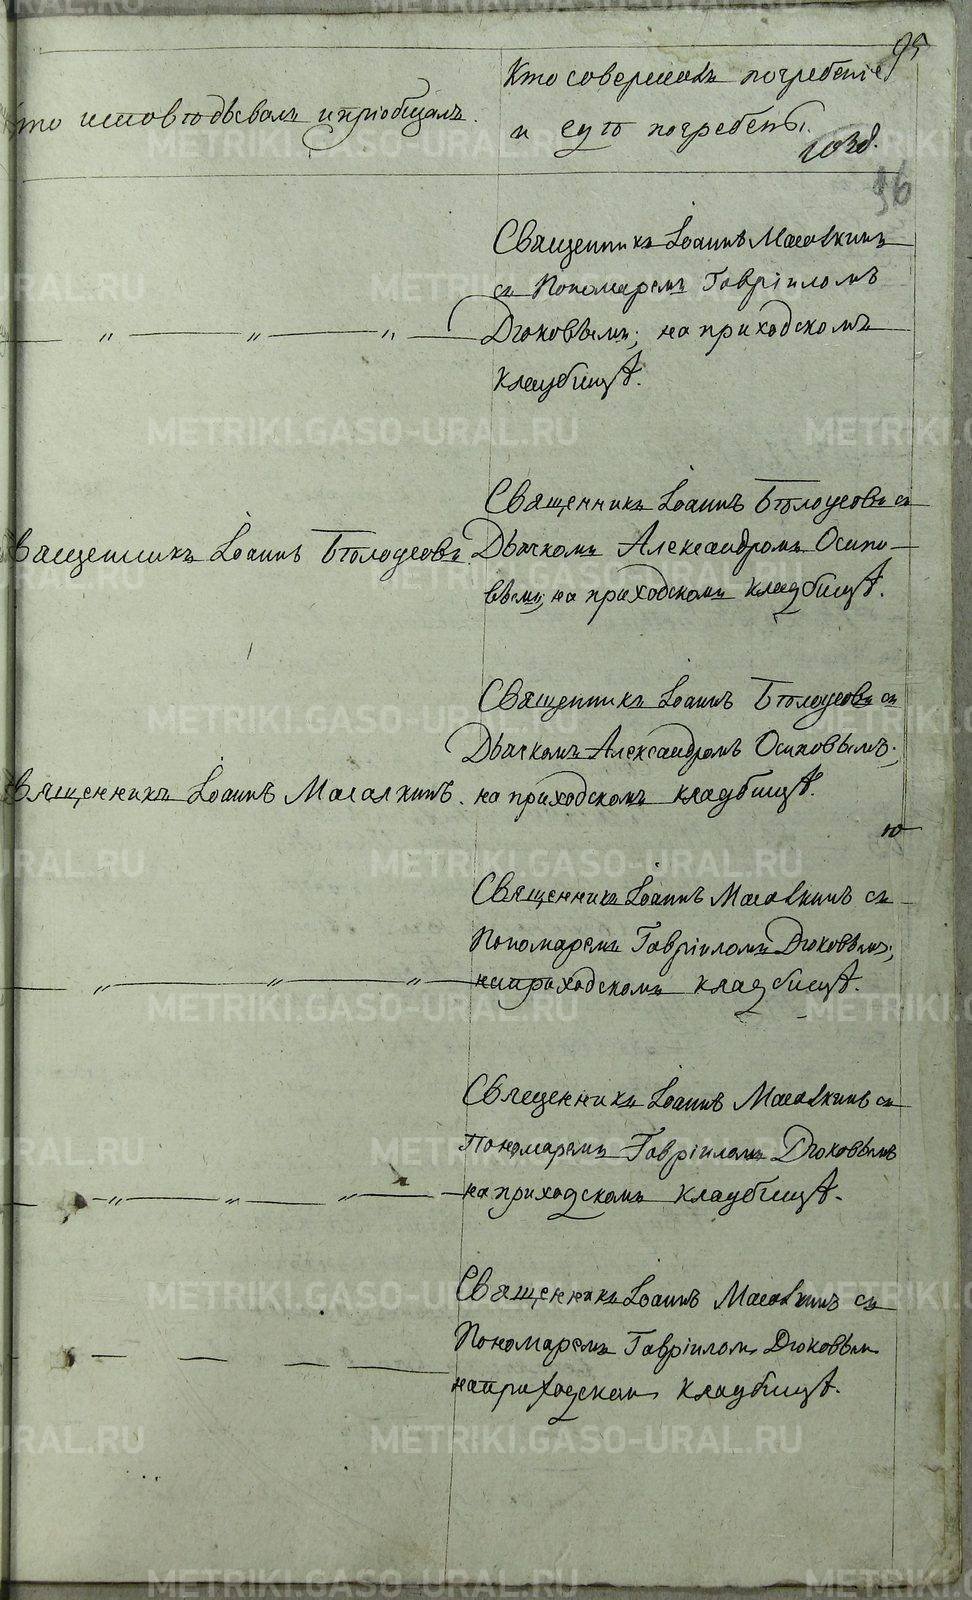 95
Кто исповѣдывалъ и пріобщалъ.
Кто совершалъ погребеніе
и гдѣ погребены.
96
Священникъ Іоаннъ Масалкинъ
съ Пономаремъ Гавріиломъ
Дюковымъ; на приходскомъ
кладбищѣ.
Священникъ Іоаннъ Бѣлоусовъ
Священникъ Іоаннъ Бѣлоусовъ съ
Дьячкомъ Александромъ Осипо-
вымъ; на приходскомъ кладбищѣ.
Священникъ Іоаннъ Масалкинъ.
Священникъ Іоаннъ Бѣлоусовъ съ
Дьячкомъ Александромъ Осиповымъ;
на приходскомъ кладбищѣ.
Священникъ Іоаннъ Масалкинъ съ
Пономаремъ Гавріиломъ Дюковымъ;
на приходскомъ кладбищѣ.
Священникъ Іоаннъ Масалкинъ съ
Пономаремъ Гавріиломъ Дюковымъ
на приходскомъ кладбищѣ.
Священникъ Іоаннъ Масалкинъ съ
Пономаремъ Гавріиломъ Дюковымъ
на приходскомъ кладбищѣ.
METRIKI.GASO-URAL.RU